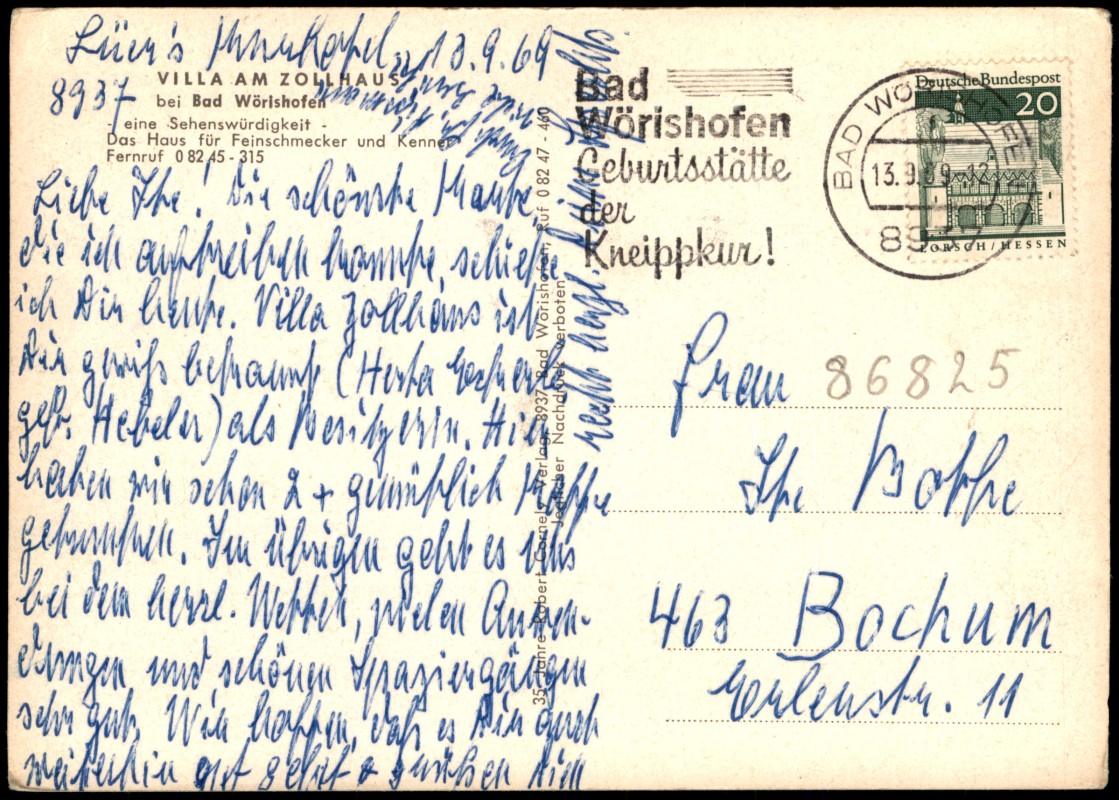 Lüer's 13.9.69
8937
VILLA AM ZOLLHAUS
bei Bad Wörishofen
- eine Sehenswürdigkeit -
Das Haus für Feinschmecker und Kenner
Fernruf 0 82 45 - 315
Liebe Ihe! Die schönste Karte,
die ich auftreiben konnte, schicke
ich Dir heute. Villa Zollhaus ist
Dir gewiß bekannt (Herta
geb. Hebeler) als Besitzerin. Hier
haben wir schon 2 + gemütlich Kaffee
getrunken. Im übrigen geht es uns
bei dem herrl. Wetter, vielen Anwen-
dungen und schönen Spaziergängen
sehr gut. Wir hoffen, daß es Dir auch
weiterhin gut geht + grüßen Dich
recht herzl. Deine
35 Jahre Robert Cornely Verlag, 8937 Bad Wörishofen, Ruf 0 82 47 - 460
Jeglicher Nachdruck verboten
Bad
Wörishofen
Geburtsstätte
der
Kneippkur!
BAD WÖRISHOFEN
13.9.69-12
Deutsche Bundespost
20
LORSCH/HESSEN
Frau 86825
Ihe Bothe
463 Bochum
Erlenstr. 11